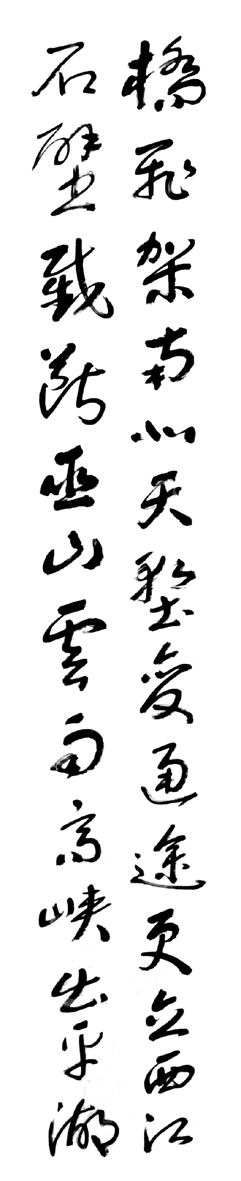 橋飛架南北天塹變通途更立西江
石壁截斷巫山雲雨高峽出平湖